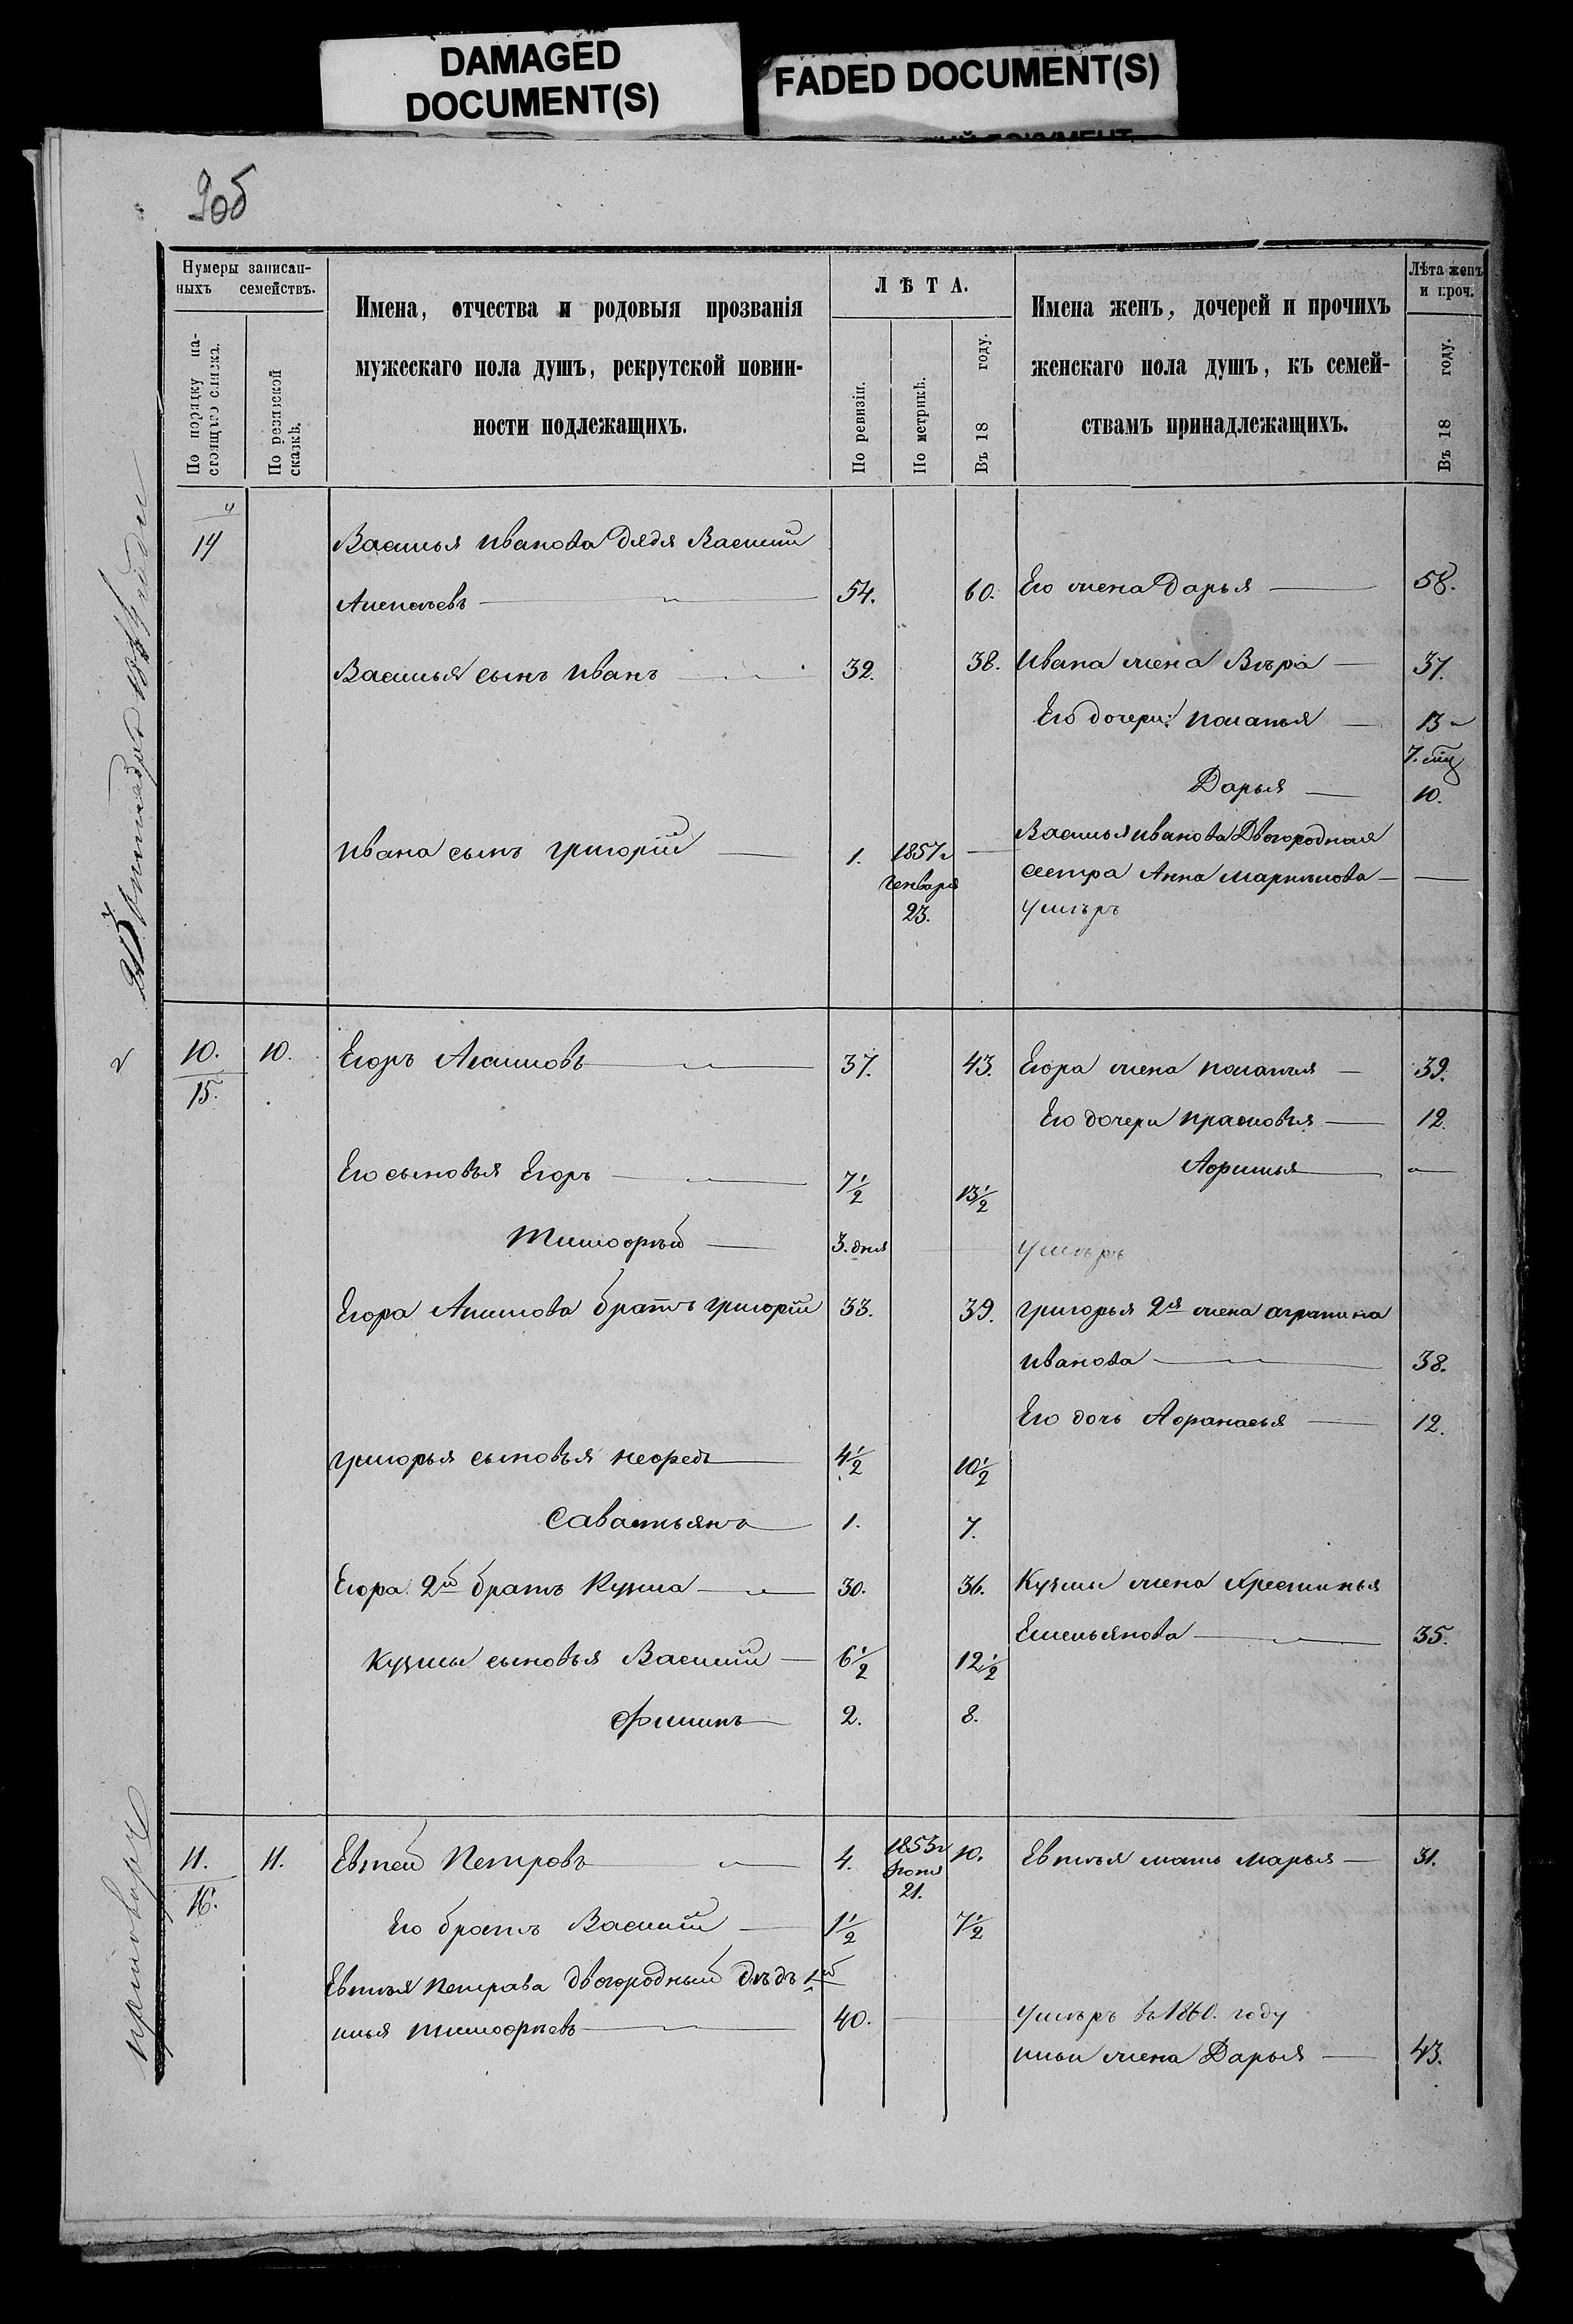 DAMAGED
DOCUMENT(S)
FADED DOCUMENT(S)
90б
Нумеры записан-
ныхъ семействъ.
По порядку на-
стоящаго списка.
По ревизской
сказкѣ.
Имена, отчества и родовыя прозванія
мужескаго пола душъ, рекрутской повин-
ности подлежащихъ.
ЛѢТА.
По ревизіи.
По метрикѣ.
Въ 18 году.
Имена женъ, дочерей и прочихъ
женскаго пола душъ, къ семей-
ствамъ принадлежащихъ.
Лѣта женъ
и проч.
Въ 18 году.
14 Василья Иванова дядя Василій
54. 60. Его жена Дарья 58.
Василья сынъ Иванъ 32. 38. Ивана жена Вѣра 37.
Его дочери: Маланья 13
7.
Дарья 10.
Ивана сынъ Григорій 1. 1857
Генваря
23.
Василья Иванова Двоюродная
сестра Анна
Умѣръ
10. 10. Егоръ 37. 43. Егора жена Маланья 39.
15.
Его дочери Прасковья 12.
Его сыновья Егоръ 7½ 13½
Афимья
Тимофѣй 3. дня Умѣръ
Егора Акимова братъ Григорій 33. 39. Григорья 2я жена Аграпина
Иванова 38.
Его дочь Афанасья 12.
Григорья сыновья Нефедъ 4½ 10½
Савастьянъ 1. 7.
Егора 2й братъ Кузма 30. 36. Кузмы жена Хрестинья
Емельянова 35.
Кузмы сыновья Василій 6½ 12½
Филипъ 2. 8.
11. 11. Евтей Петровъ 4. 1853 10. Евтѣя мать Марья 31.
16.
21.
Его братъ Василій 1½ 7½
Евтѣя Петрова двоюродный дѣдъ 1й
Илья Тимофѣевъ 40. Умѣръ въ 1860. году
Ильи жена Дарья 43.